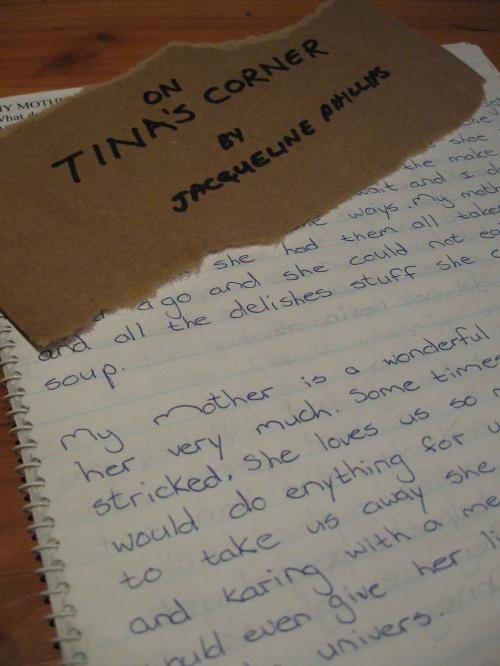 ON
TINA'S CORNER
BY
JACQUELINE PHILLIPS
MY
What
she
shoe
the make
wait and I
ways. My
she had them all
ago and she could not
and all the delishes stuff she
soup.
My mother is a wonderful
her very much. Some times
stricked. She loves us so
would do enything for
to take us away she
and karing with a
even give her
univers.